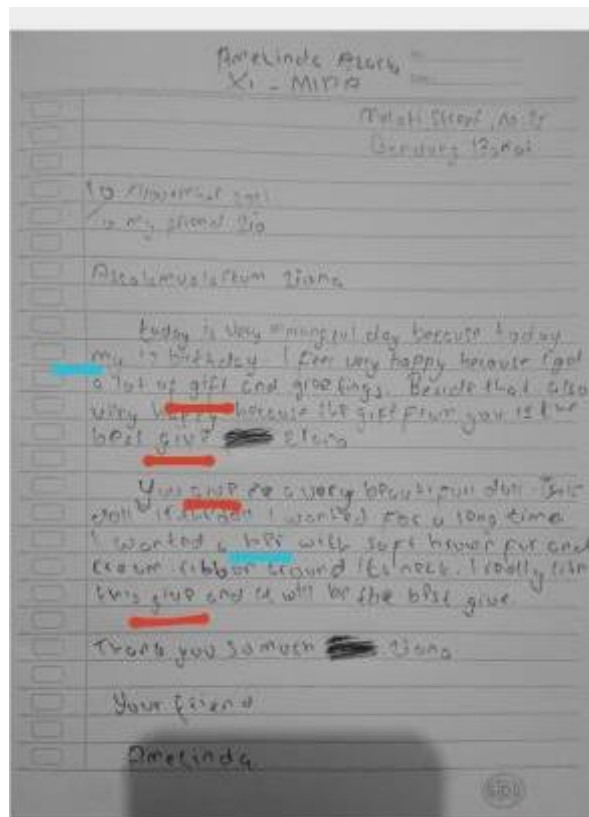 Amelinda
XI - MIPA
Street, No.
Bandung 13, Mei
To
To my friend Lia
Assalamualaikum Liana
today is very day because today
my is birthday. I feel very happy because I got
a lot of gift and greetings. Beside that also
very happy because the gift from you is the
best give Liana
You give a very beautiful doll. This
doll is the doll I wanted for a long time
I wanted a with soft brown fur and
cream ribbon around its neck. I really like
this give and it will be the best give.
Thank you so much Liana
Your friend
Amelinda
SIDU